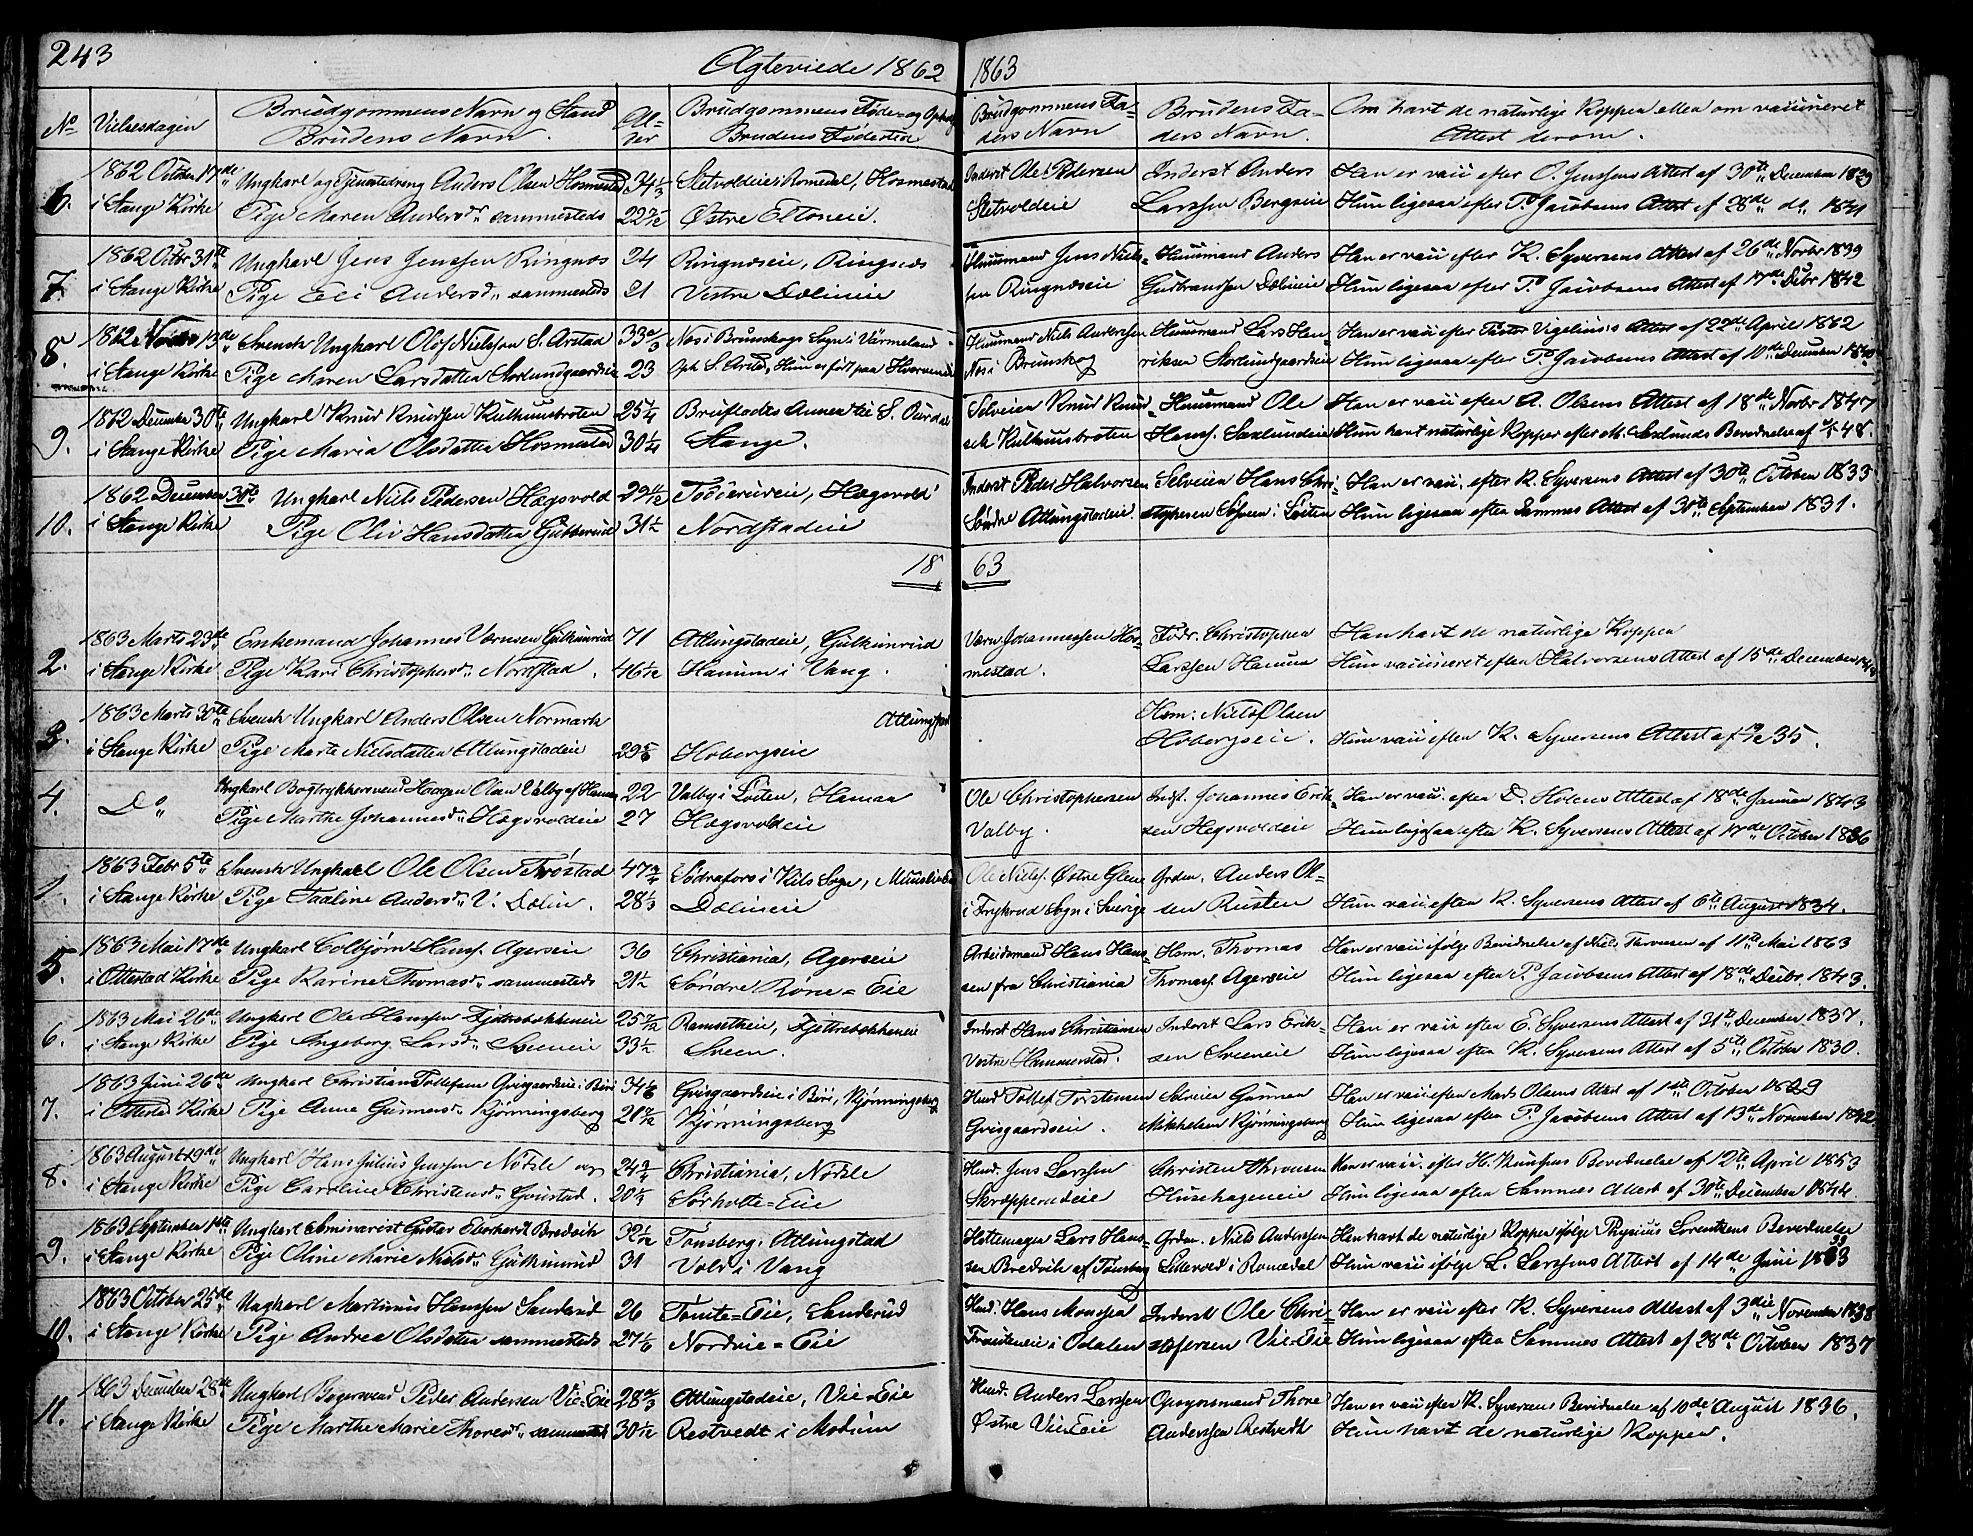 243
Ægteviede 1862
1863
No
Vielsesdagen
Brudgommens Navn og Stand
Brudens Navn.
Al-
der
Brudgommens Føde- og Opholds
Brudens Fødested
Brudgommens Fa-
ders Navn
Brudens Fa-
ders Navn.
Om havt de naturlige Kopper eller om vaccineret
Attest derom.
6.
1862 October 17de
i Stange Kirke
Ungkarl og Tjenestedreng Anders Olsen Hosmestad
Pige Maren Andersd. sammesteds
24 1/3
22
Sletvoldeie i Romedal, Hosmestad
Østre Ettoneie.
Inderst Ole Pedersen
Sletvoldeie
Inderst Anders
Larssen Bergseie
Han er vacc efter O. Jenssens Attest af 30te December 1839
Hun ligesaa efter P. Jacobsens Attest af 28de do 1841
7.
1862 Octbr 31te
i Stange Kirke
Ungkarl Jens Jenssen Ringnes
Pige Andersd. sammesteds
24
21
Ringnæseie, Ringnes
Vestre Dælineie
Huusmand Jens Niels-
sen Ringnæseie
Huusmand Anders
Gudbrandsen Dælineie
Han er vacc efter K. Syversens Attest af 26de Novbr 1839
Hun ligesaa efter P. Jacobsens Attest af 17de Debr 1842
8.
1862 13de
i Stange Kirke
Svensk Ungkarl Olof Nielsson S. Arstad
Pige Maren Larsdatter Storlundgaardeie
33 2/3
23
Nos i Brunskogs Sogn i Värmeland
Oph. S. Arstad, Hun er født paa
Huusmand Niels Anderssen
Nos i Brunskog
Huusmand Lars Hen-
riksen Storlundgaardeie
Han er vacc efter Pastor Vigelius's Attest af 22de April 1862
Hun ligesaa efter P. Jacobsens Attest af 10de December 1840
9.
1862 December 30te
i Stange Kirke
Ungkarl Knud Knudsen Kulhuusbroten
Pige Maria Olsdatter Hosmestad
25 1/4
30 1/4
Bruflodts Annex til S. Aurdal
Stange.
Selveier Knud Knud-
sen Kulhuusbroten
Huusmand Ole
Hansen Saxlundeie
Han er vacc efter A. Olsens Attest af 18de Novbr 1847
Hun havt naturlige Kopper efter M. Saxlunds Bevidnelse af 48.
10.
1862 December 30te
i Stange Kirke
Ungkarl Niels Pedersen Hægsvold
Pige Olia Hansdatter Gubberud
29
31 1/2
Tødderudeie, Hægsvold
Nordstadeie
Inderst Peder Halvorsen
Søndre Atlungstadeie
Selveier Hans Chri-
stophersen i Løiten
Han er vacc. efter K. Syversens Attest af 30te October 1833
Hun ligesaa efter Sammes Attest af 30te September 1831.
18
63
2.
1863 Marts 23de
i Stange Kirke
Enkemand Johannes Værnsen Gulkinrud
Pige Kari Christophersd. Nordstad.
71
46 1/2
Atlungstadeie, Gulkinrud
Hanum i Vang.
Værn Johannessen Hos-
mestad.
Fodr. Christopher
Larssen Hanum
Han havt de naturlige Kopper
Hun vaccineret efter Halvorsens Attest af 15de December
3.
1863 Marts 30te
i Stange Kirke
Svensk Ungkarl Anders Olsen Normark
Pige Marte Nielsdatter Atlungstadeie
29 5/6
Atlungstad
Hobergseie
Hsm: Niels Olsen
Hobergseie.
Hun vacc efter K. Syversens Attest af 35.
4.
Do
Ungkarl Bogtrykkersvend Haagen Olsen Valby af Hamar
Pige Marthe Johannesd. Hægsvoldeie
22
27
Valby i Løiten, Hamar
Hægsvoldeie
Ole Christophersen
Valby.
Indst. Johannes Erik-
sen Hegsvoldeie
Han er vacc. efter D. Holens Attest af 18de Januar 1843
Hun ligesaa efter K. Syversens Attest af 17de October 1836
1.
1863 Febr 5te
i Stange Kirke
Svensk Ungkarl Ole Olsen Frøstad
Pige Pauline Andersd. V. Dælin.
47
28 1/3
Södrafors i Kils Sogn,
Dælineie
Ole Niels. Østre Glene
i Frykerud Sogn i Sverige
Grdm. Anders Ol-
sen Rusten
Hun vacc efter K. Syversens Attest af 6te August 1834.
5.
1863 Mai 17de
i Ottestad Kirke
Ungkarl Colbjørn Hans. Agerseie
Pige Karine Thomasd. sammesteds
36
21 1/2
Christiania, Agerseie
Søndre Røne=Eie
Arbeidsmand Hans Hans-
sen fra Christiania
Hsm. Thomas
Thomass. Agerseie
Han er vacc ifølge Bevidnelse af Mai 1863
Hun ligesaa efter P. Jacobsens Attest af 18de Decbr 1843.
6.
1863 Mai 26de
i Stange Kirke
Ungkarl Ole Hanssen Fjetrebakkeneie
Pige Ingeborg Larsd. Sveeneie
25
33 1/2
Ramsetheie, Fjettrebakkeneie
Sveen.
Inderst Hans Christiansen
Vestre Hammerstad.
Inderst Lars Erik-
sen Sveeneie
Han er vacc efter E. Syversens Attest af 31te December 1837.
Hun ligesaa efter K. Syversens Attest af 5te October 1830.
7.
1863 Juni 26de
i Ottestad Kirke
Ungkarl Christian Tollefsen Grisgaardeie i Biri
Pige Anne Gunersd. Kjørmingsberg
34 1/6
21
Grisgaardseie i Biri, Kjørmingsberg
Kjørmingsberg
Huusd Tollef Torstensen
Grisgaardseie.
Selveier Gunner
Mikkelsen Kjørmingsberg
Han er vacc efter Mads Olsens Attest af 1ste October 1829
Hun ligesaa efter P. Jacobsens Attest af 13de November 1842
8.
1863 August 19de
i Stange Kirke
Ungkarl Hans Julius Jenssen Nøtsle og
Pige Caroline Christensd. Gaustad.
24 3/4
20
Christiania, Nøtsle
Sørholte=Eie
Huusd. Jens Larssen
Skræpperudeie
Christen Thronsen
Husehageneie
Han er vacc. efter H. Knudsens Bevidnelse af 12te April 1853
Hun ligesaa efter Sammes Attest af 30te December 1844
9.
1863 September 1ste
i Stange Kirke
Ungkarl Seminarist Gustav Eberhardt Bredvik
Pige Oline Marie Nielsd. Gulkinrud
32 1/2
31
Tønsberg, Atlungstad
Vold i Vang
Hattemager Lars Hans-
sen Bredvik af Tønsberg
Grdm. Niels Anderssen
Lillevold i Romedal
Han havt de naturlige Kopper ifølge Physicus Lorentzens Bevidnelse
Hun vacc ifølge L. Larssens Attest af 14de Juni 1833
10.
1863 October 25de
i Stange Kirke
Ungkarl Martinus Hanssen Sanderud
Pige Andrea Olsdatter sammesteds
26
27 1/6
Tomte=Eie, Sanderud
Nordvie=Eie
Huusd. Hans Monsen
i Odalen
Inderst Ole Chri-
stofersen Vie=Eie
Han er vacc efter K. Syversens Attest af 3die November 1838
Hun ligesaa efter Sammes Attest af 28de October 1837
11.
1863 December 28de
i Stange Kirke
Ungkarl Bøgersvend Peder Andersen Vie=Eie
Pige Marthe Marie Thoresd. sammesteds
28 2/3
30 1/2
Atlungstadeie, Vie=Eie
Restvedt i Modum
Huusd. Anders Larssen
Østre Vie=Eie
Opsynsmand Thore
Anderssen Restvedt
Han er vacc efter K. Syversens Bevidnelse af 10de August 1836.
Hun havt de naturlige Kopper.